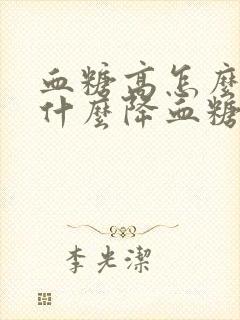 血糖高怎麼
什麼降血糖
李光潔